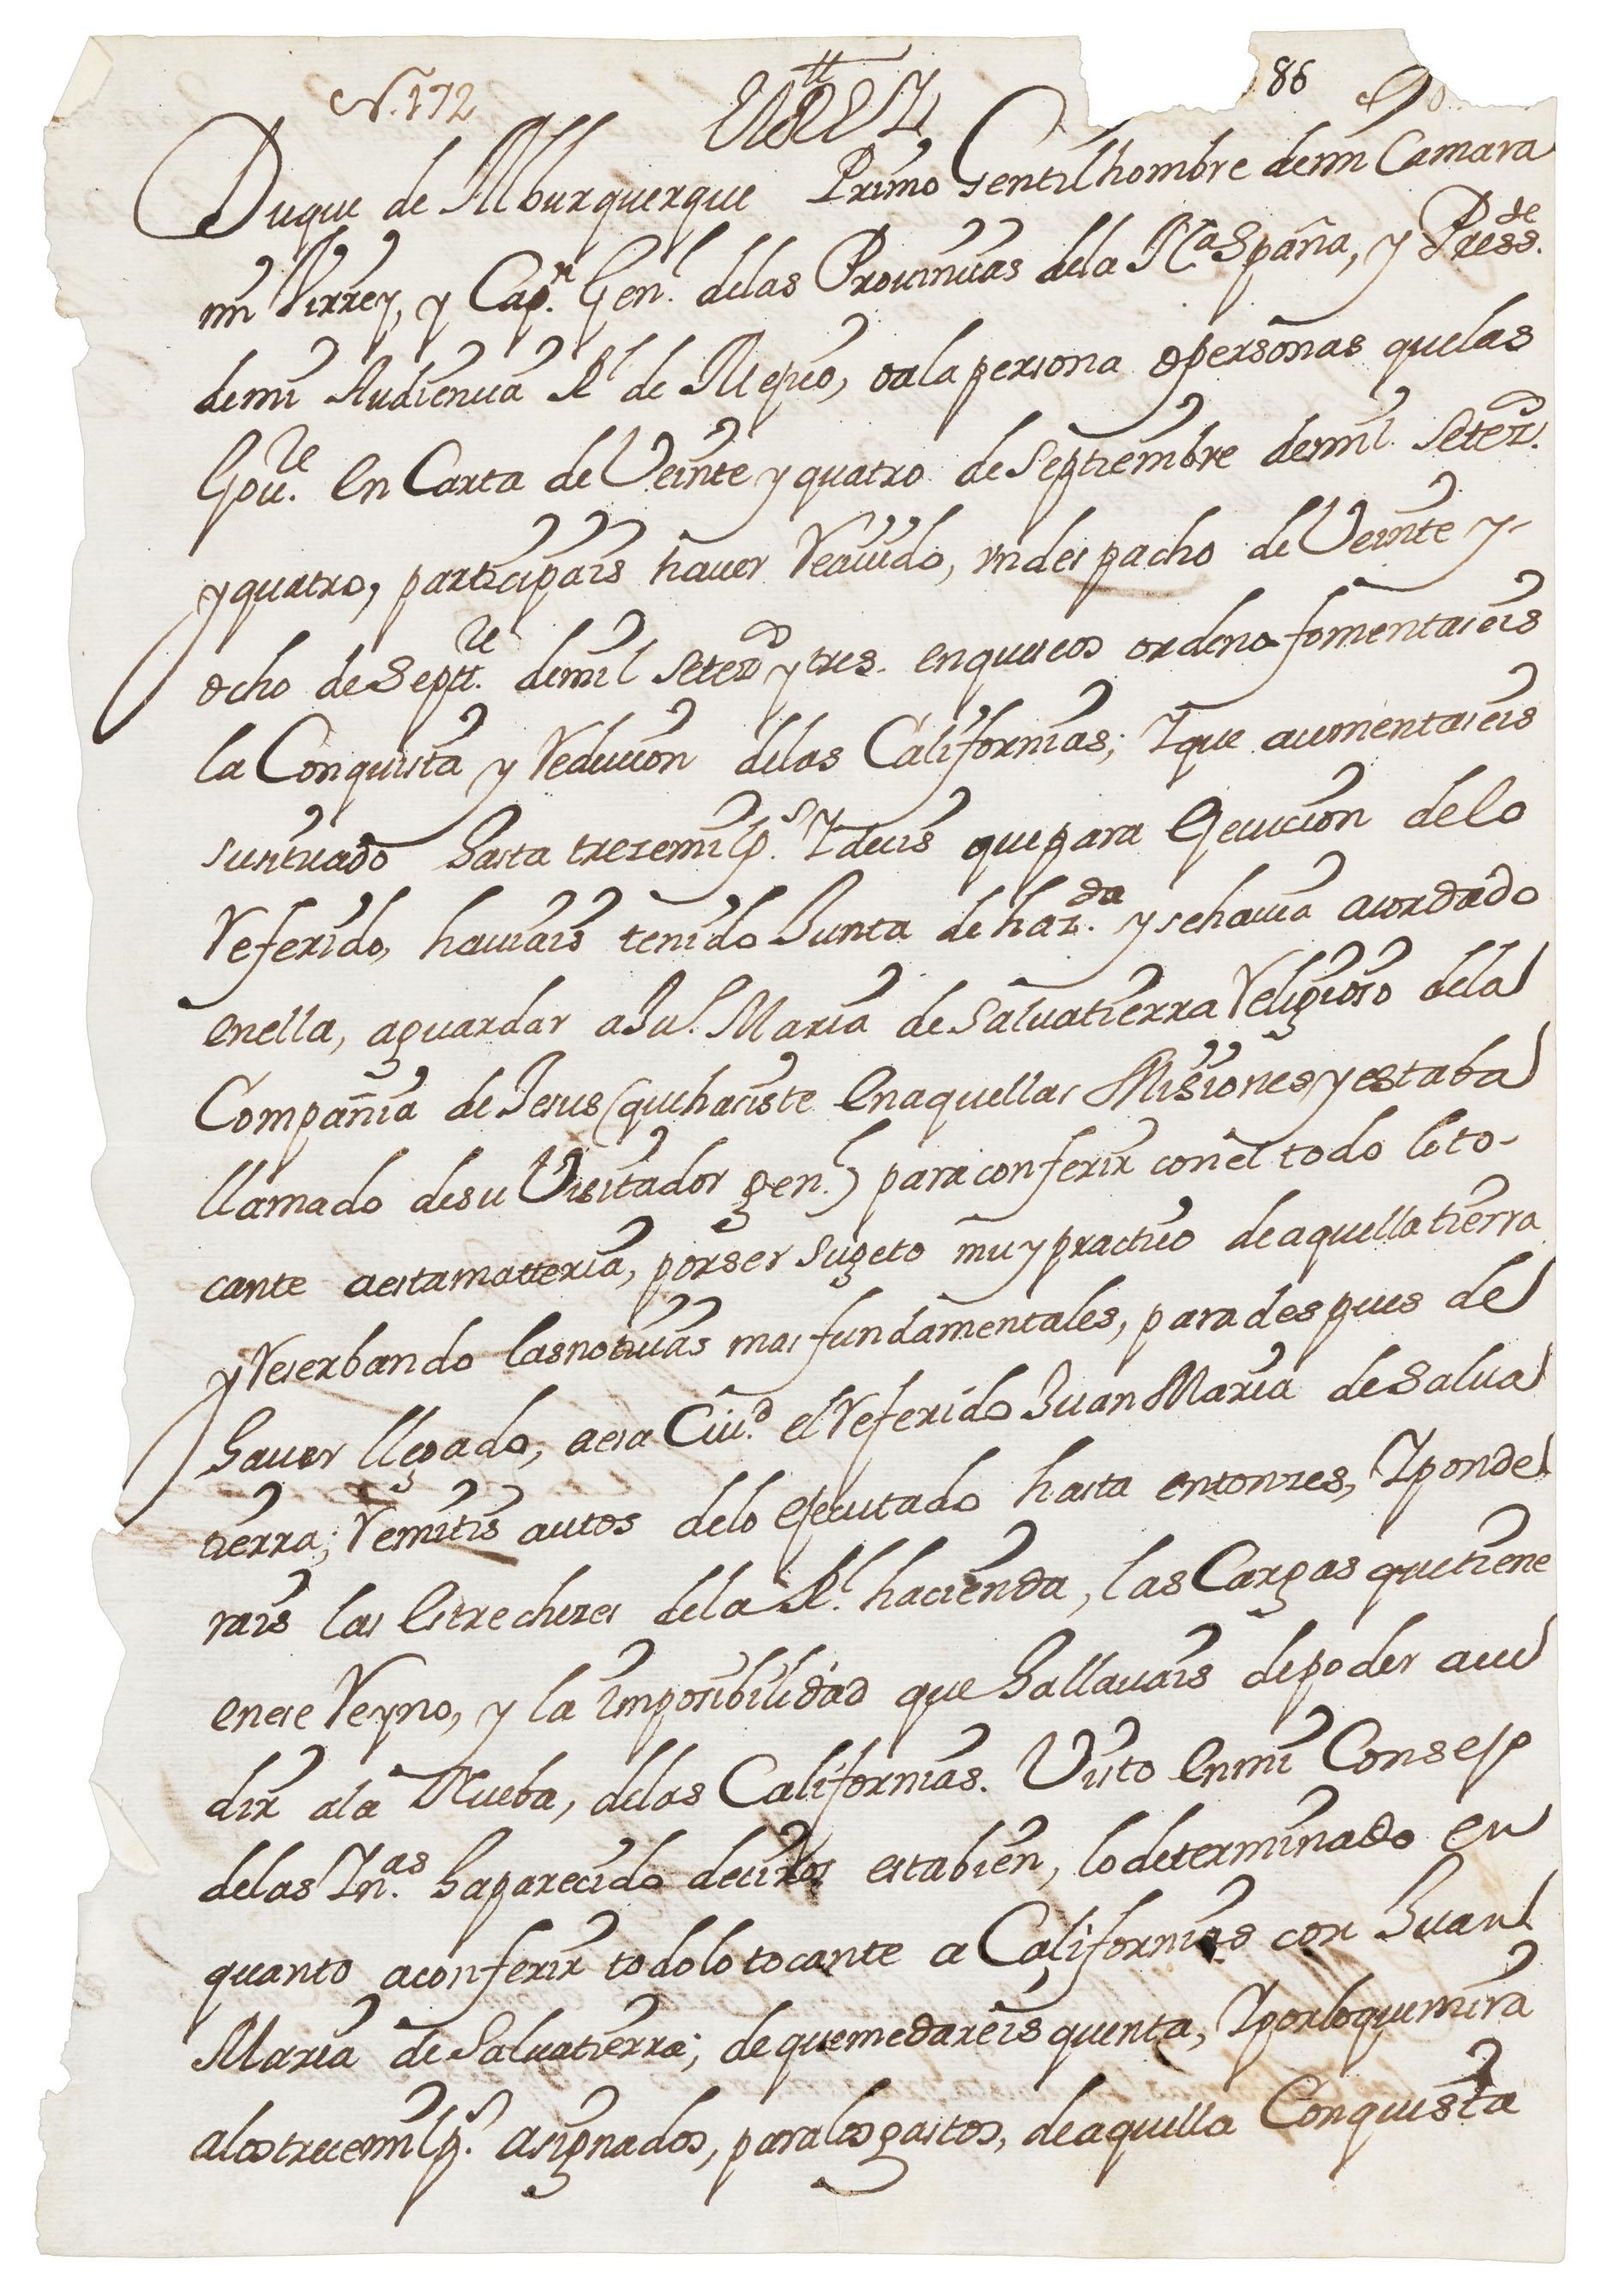 N. 172
86
El Rey
Duque de Alburquerque Primo Gentilhombre demi Camara
mi Virrey, y Cap.n Gen.l delas Prouincias dela N.a España, y Press.de
demi Audiencia R.l de Mexico, o ala persona o personas quelas
Gou.re En Carta de Veinte y quatro de Septiembre demil Setez.os
y quatro, participais hauer Reciuido, un despacho de Veinte y
ocho de Sept.re demil Setez.os y tres. enqueseos ordeno fomentaseis
la Conquista y Reducion delas Californias; Y que aumentaseis
susituado hasta trezemil p.s Y decis quepara Execucion delo
Referido, hauiais tenido Junta de haz.da y sehauia acordado
enella, aguardar a Ju.o Maria de Saluatierra Religioso dela
Compañia de Jesus (quehasiste Enaquellas Misiones y estaba
llamado desu Uisitador gen.l) para conferir con el todo loto-
cante aestamatteria, porser Sugeto muy practico de aquella tierra
y Reserbando lasnoticias mas fundamentales, para despues de
hauer llegado, aesa Ciu.d el Referido Juan Maria de Salua
tierra; Remitis autos delo executado hasta entonzes, Y ponde
rais las Estrechezes dela R.l hacienda, las Cargas quetiene
enese Reyno, y la imposibilidad que hallauais depoder acu
dir ala Nueba, delas Californias. Uisto Enmi Consejo
delas Yn.as haparecido deciros estabien, lodeterminado en
quanto aconferir todolotocante a Californias con Juan
Maria de Saluatierra; de quemedareis quenta, Y porloquemira
alostrecemil p.s asignados, paralosgastos, deaquella Conquista